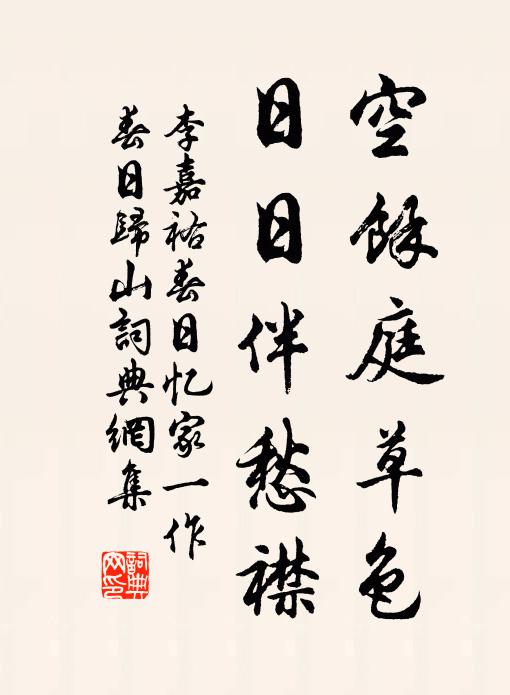 空餘庭草色
日日伴愁襟
李嘉祐春日忆家一作
春日歸山詞典網集
詞典網印